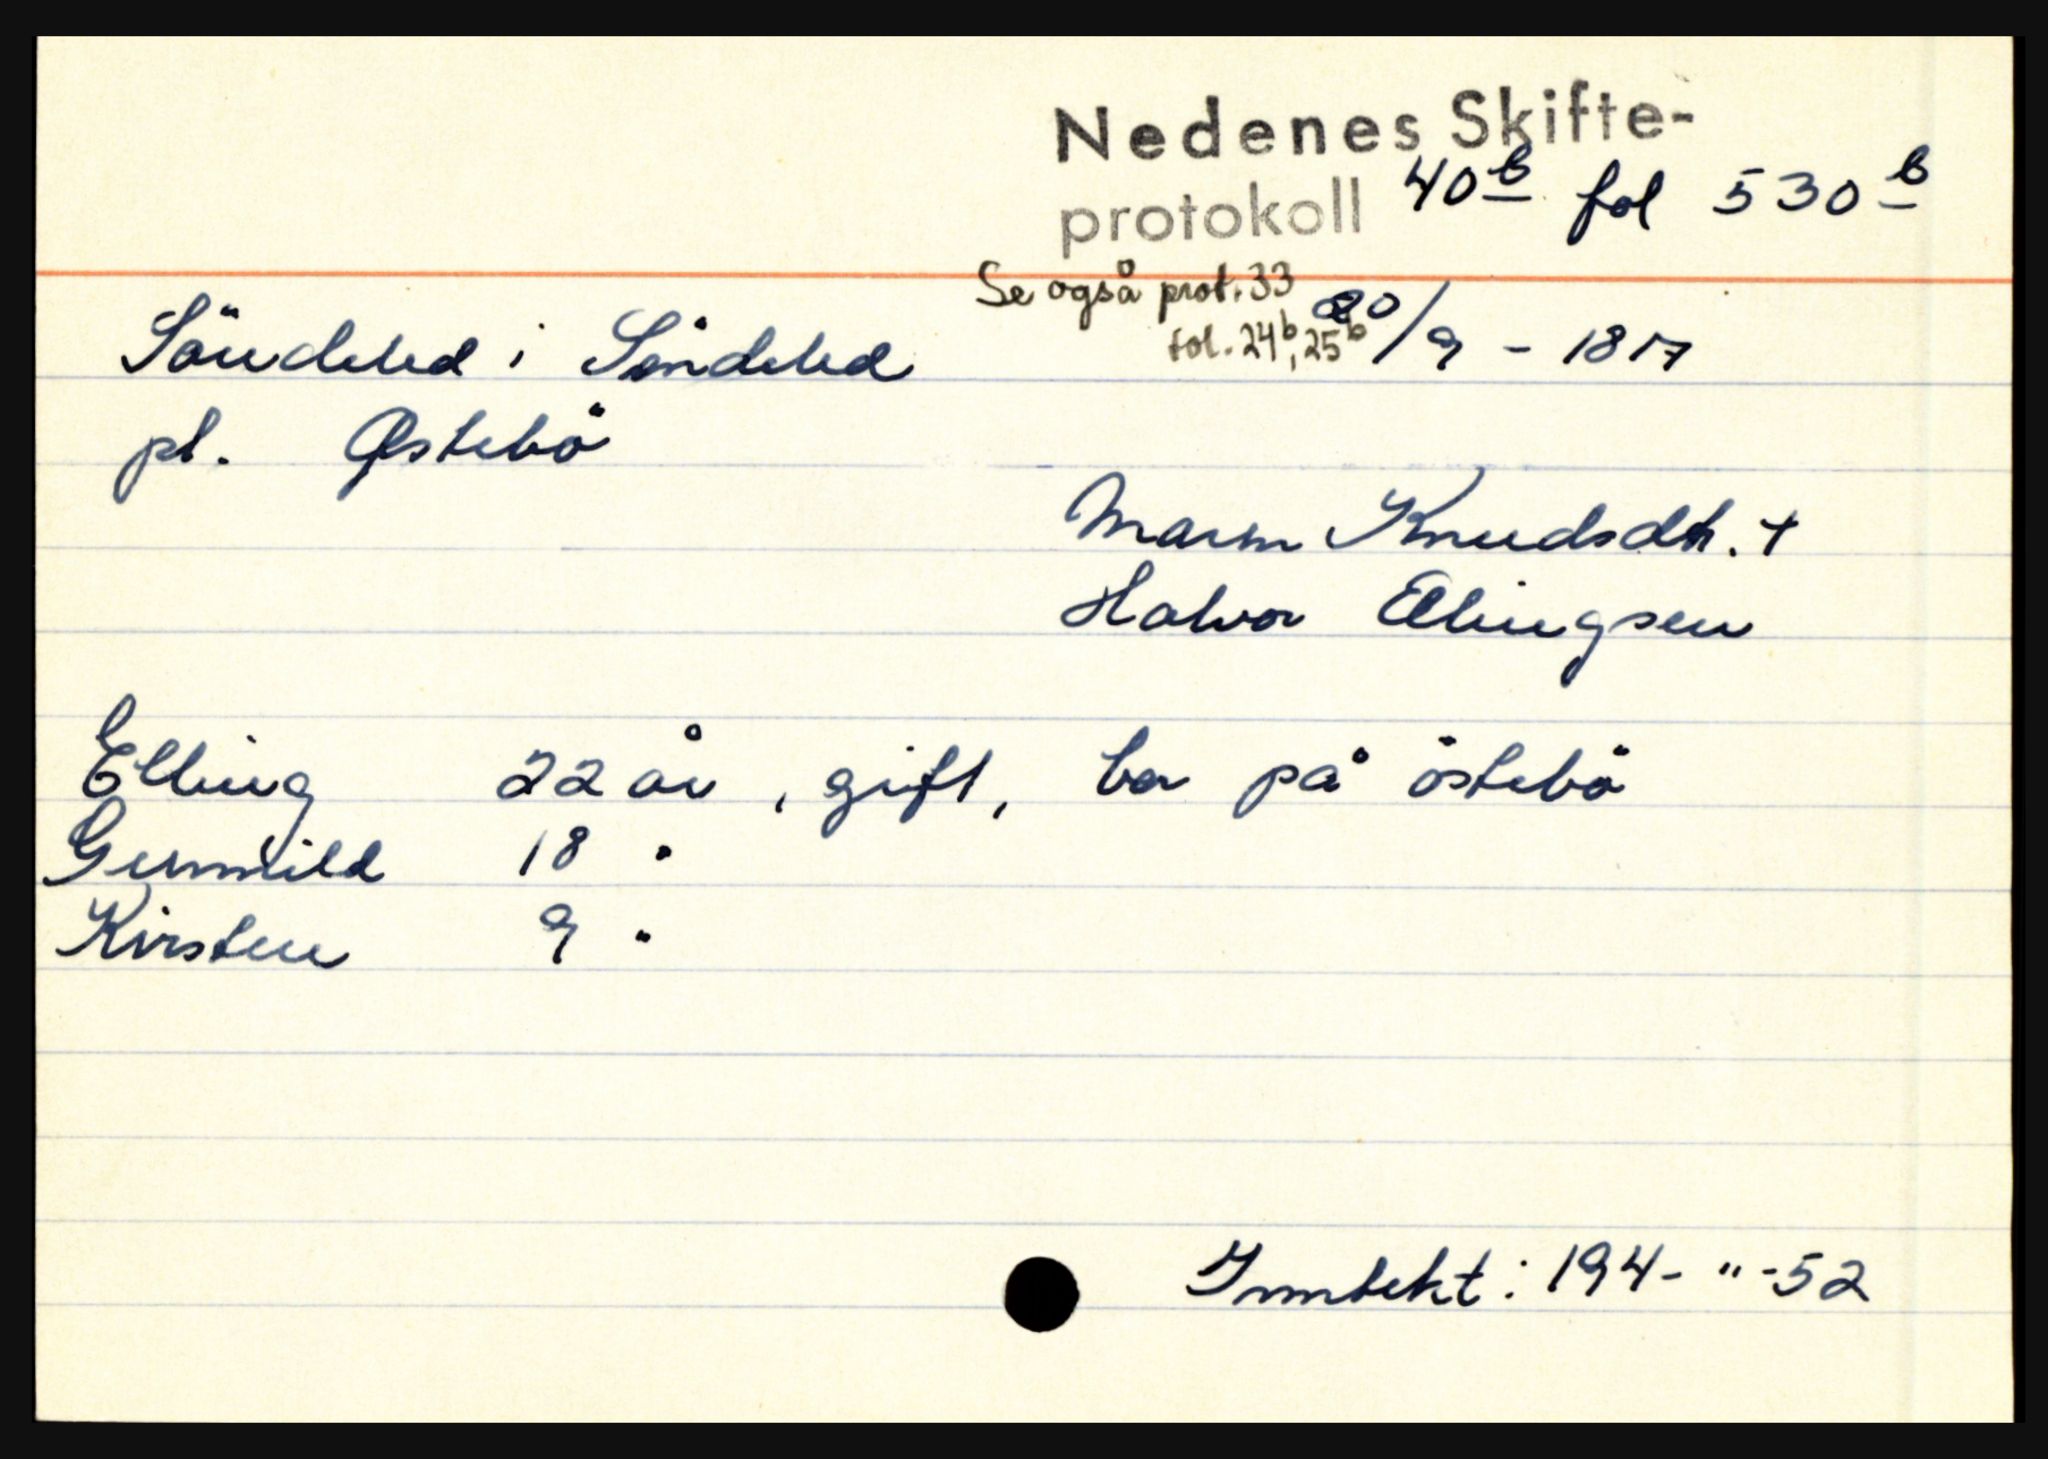 Nedenes Skifte-
protokoll 40b fol 530b
Se også prot. 33
fol. 24b, 25b
20/9 - 1817
Söndeled i Söndeled
pl. Østebö
Maren Knudsdtr. +
Halvor Ellingsen
Elling 22 år, gift, bor på östebö
Gunnild 18 "
Kirsten 9 "
Inntekt: 194- " -52